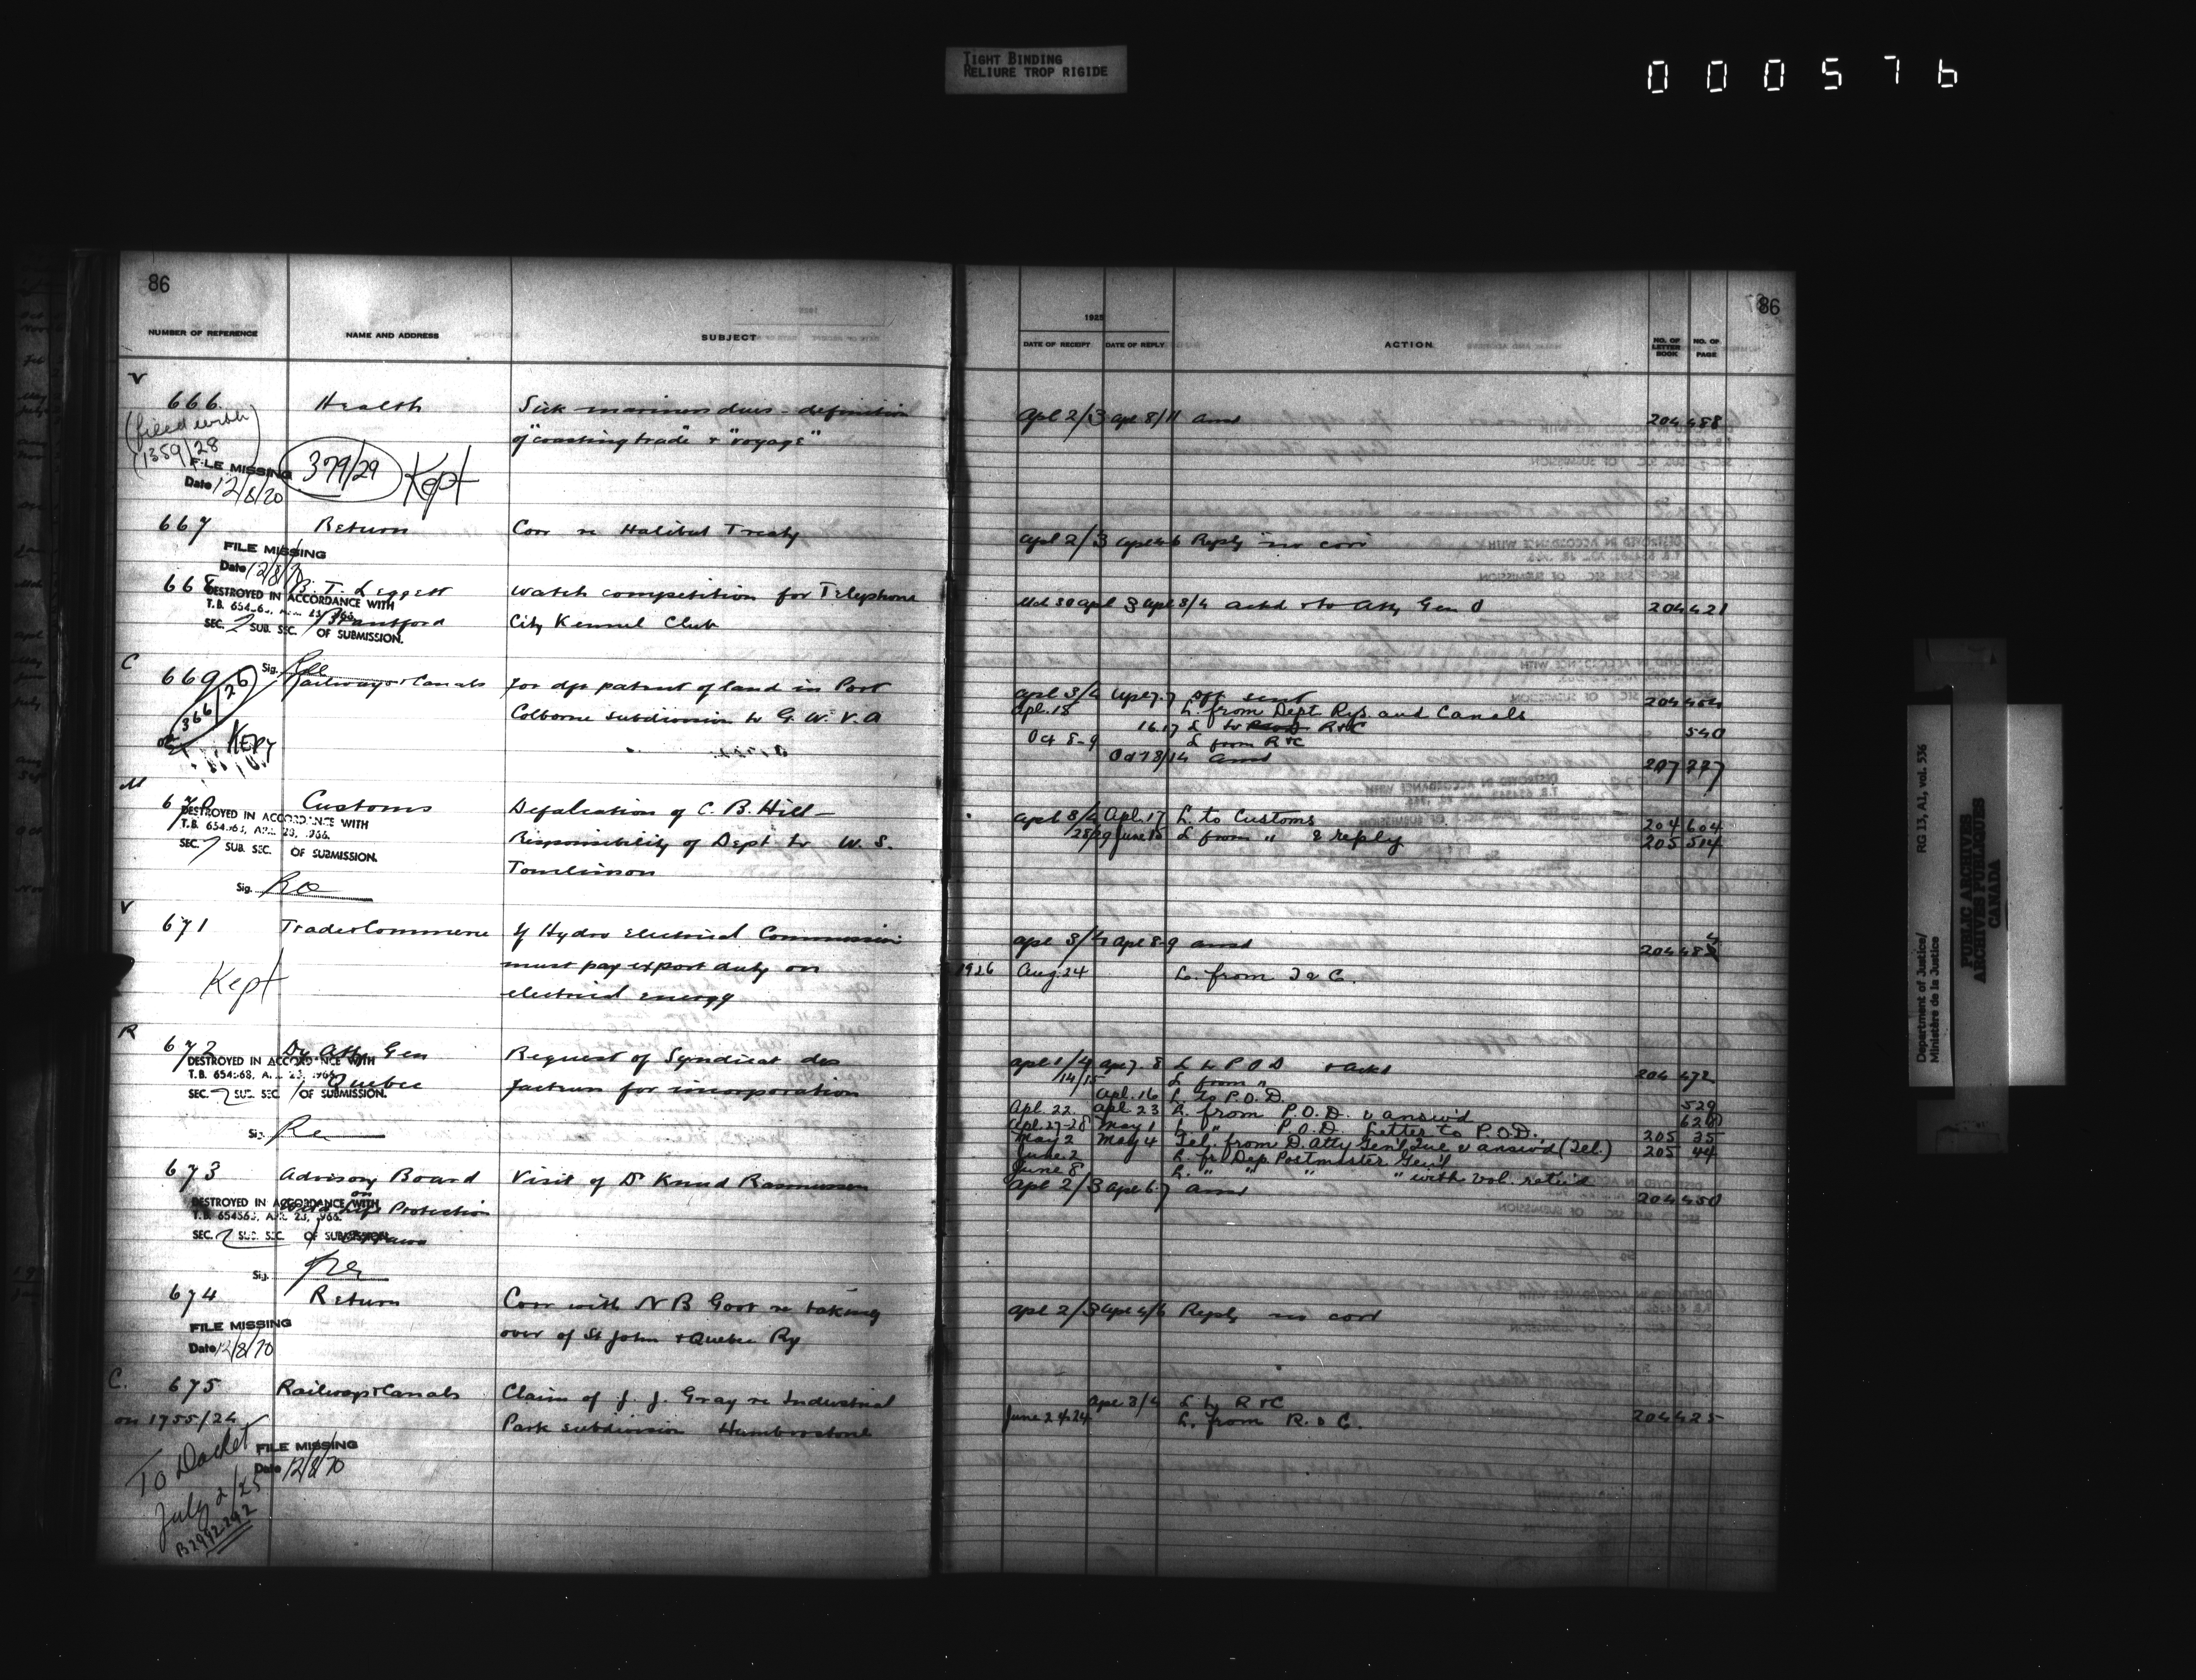 TIGHT BINDING
RELIURE TROP RIGIDE
000576
86
NUMBER OF REFERENCE NAME AND ADDRESS SUBJECT
1925
DATE OF RECEIPT DATE OF REPLY ACTION NO. OF LETTER BOOK NO. OF PAGE
86
V
666 Health Sick mariners dues - definition
of "coasting trade" & "voyage"
(filed with
1359/28)
FILE MISSING
Date 12/8/70
379/29 Kept
Apl 2/3 Apl 8/11 ansd 204 488
667 Return Corr re Halibut Treaty
FILE MISSING
Date 12/8/70
Apl 2/3 Apl 4/6 Reply no corr
668 B. T. Leggett Watch competition for Telephone
Brantford City Kennel Club
DESTROYED IN ACCORDANCE WITH
SEC. 2 SUB. SEC. 1 OF SUBMISSION.
Sig.
Apl 3 Apl 3/4 ackd & to Atty Gen O 204 421
C
669 Railways & Canals for dft patent of land in Port
Colborne subdivision to G. W. V. A
366/26
KEPT
Apl 3/4 Apl 7.7 dft sent 204 454
Apl. 18 L. from Dept. Rys. and Canals
16.17 L to R&C 540
Oct 8-9 L from R&C
Oct 13/14 ansd 207 277
M
670 Customs Defalcation of C. B. Hill -
Responsibility of Dept to W. S.
Tomlinson
DESTROYED IN ACCORDANCE WITH
SEC. 7 SUB. SEC. OF SUBMISSION.
Sig.
Apl 3/4 Apl. 17 L to Customs 204 604
28/29 June 15 L from " & reply 205 514
V
671 Trade & Commerce If Hydro Electrical Commission
must pay export duty on
electrical energy
Kept
Apl 3/4 Apl 8-9 ansd 204
1926 Aug. 24 L. from T & C.
R
672 Dy. Atty Gen Request of Syndicat des
Quebec facteurs for incorporation
DESTROYED IN ACCORDANCE WITH
SEC. 2 SUB. SEC. 1 OF SUBMISSION.
Sig.
Apl 1/4 Apl 7. 8 L to P O D & ackd 204 472
14/15 L from "
Apl. 16 L to P.O.D. 529
Apl. 22 Apl. 23 L. from P.O.D. & answ'd
Apl. 27-28 May 1 L " P.O.D. Letter to P.O.D. 205 35
May 2 May 4 Tel. from D. Atty Gen'l Que & answ'd (Tel.) 205 44
June 2 L. fr. Dep. Postmaster Gen'l
June 8 L. " " " with vol. retn'd
673 Advisory Board Visit of Dr Knud Rasmussen
on
Wild Life Protection
Ottawa
DESTROYED IN ACCORDANCE WITH
SEC. 2 SUB. SEC. 1 OF SUBMISSION.
Sig.
Apl 2/3 Apl 6.7 ansd 204 450
674 Return Corr with N B Govt re taking
over of St John & Quebec Ry
FILE MISSING
Date 12/8/70
Apl 2/3 Apl 4/6 Reply no corr
C. 675 Railways & Canals Claim of J. J. Gray re Industrial
on 1755/24 Park subdivision Humberstone
To Docket
July 2/25
FILE MISSING
Date 12/8/70
Apl 3/4 L to R&C 204 425
June 24 L. from R. & C.
Department of Justice/
Ministère de la Justice
RG 13, A1, vol. 536
PUBLIC ARCHIVES
ARCHIVES PUBLIQUES
CANADA